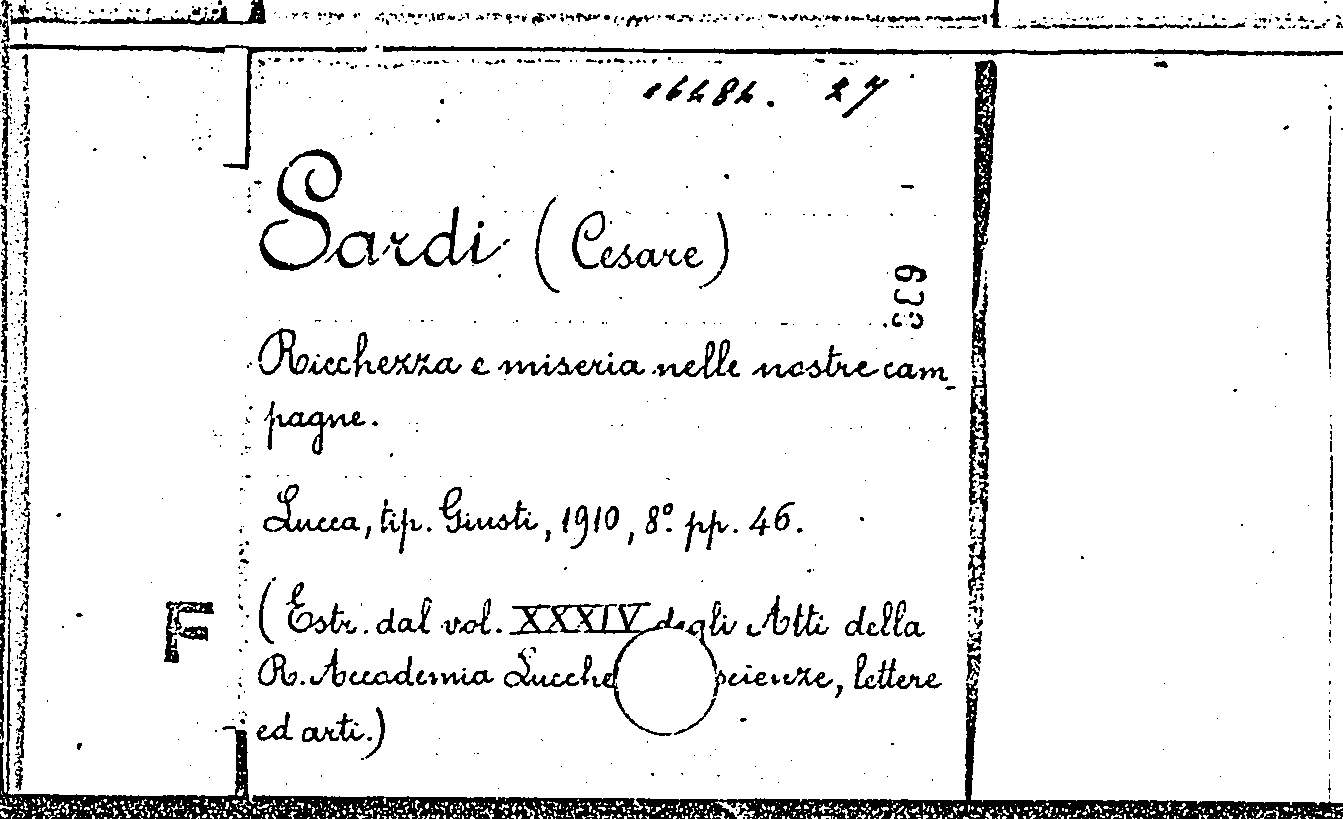 16484. 27
Sardi (Cesare)
639
Ricchezza e miseria nelle nostre cam_
pagne.
Lucca, tip. Giusti, 1910, 8.° pp. 46.
F
(Estr. dal vol. XXXIV degli Atti della
R. Accademia lettere
ed arti.)